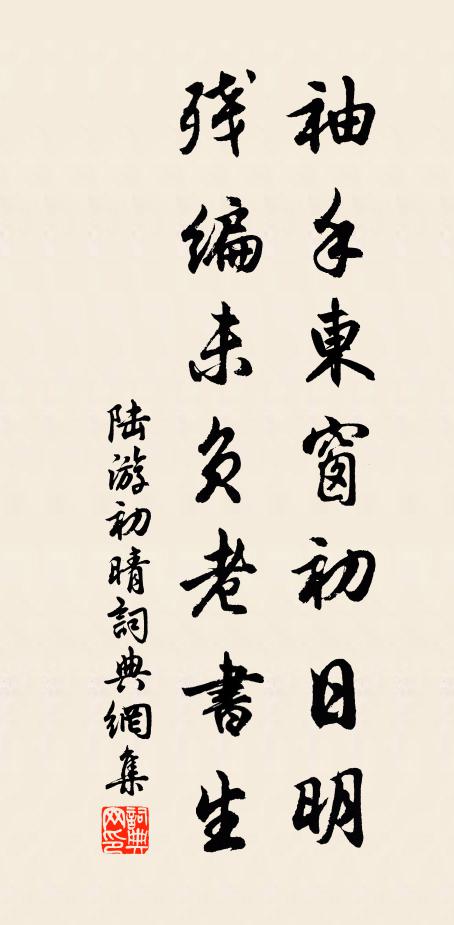 袖手東窗初日明
残编未负老書生
陆游初晴詞典網集
詞典网印